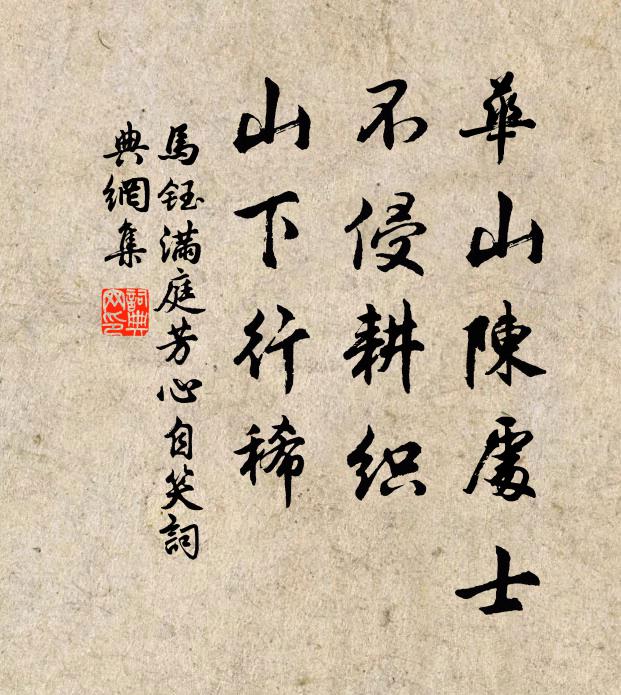 華山陳處士
不侵耕織
山下行稀
馬鈺滿庭芳心自笑詞
典網集
詞典
网印